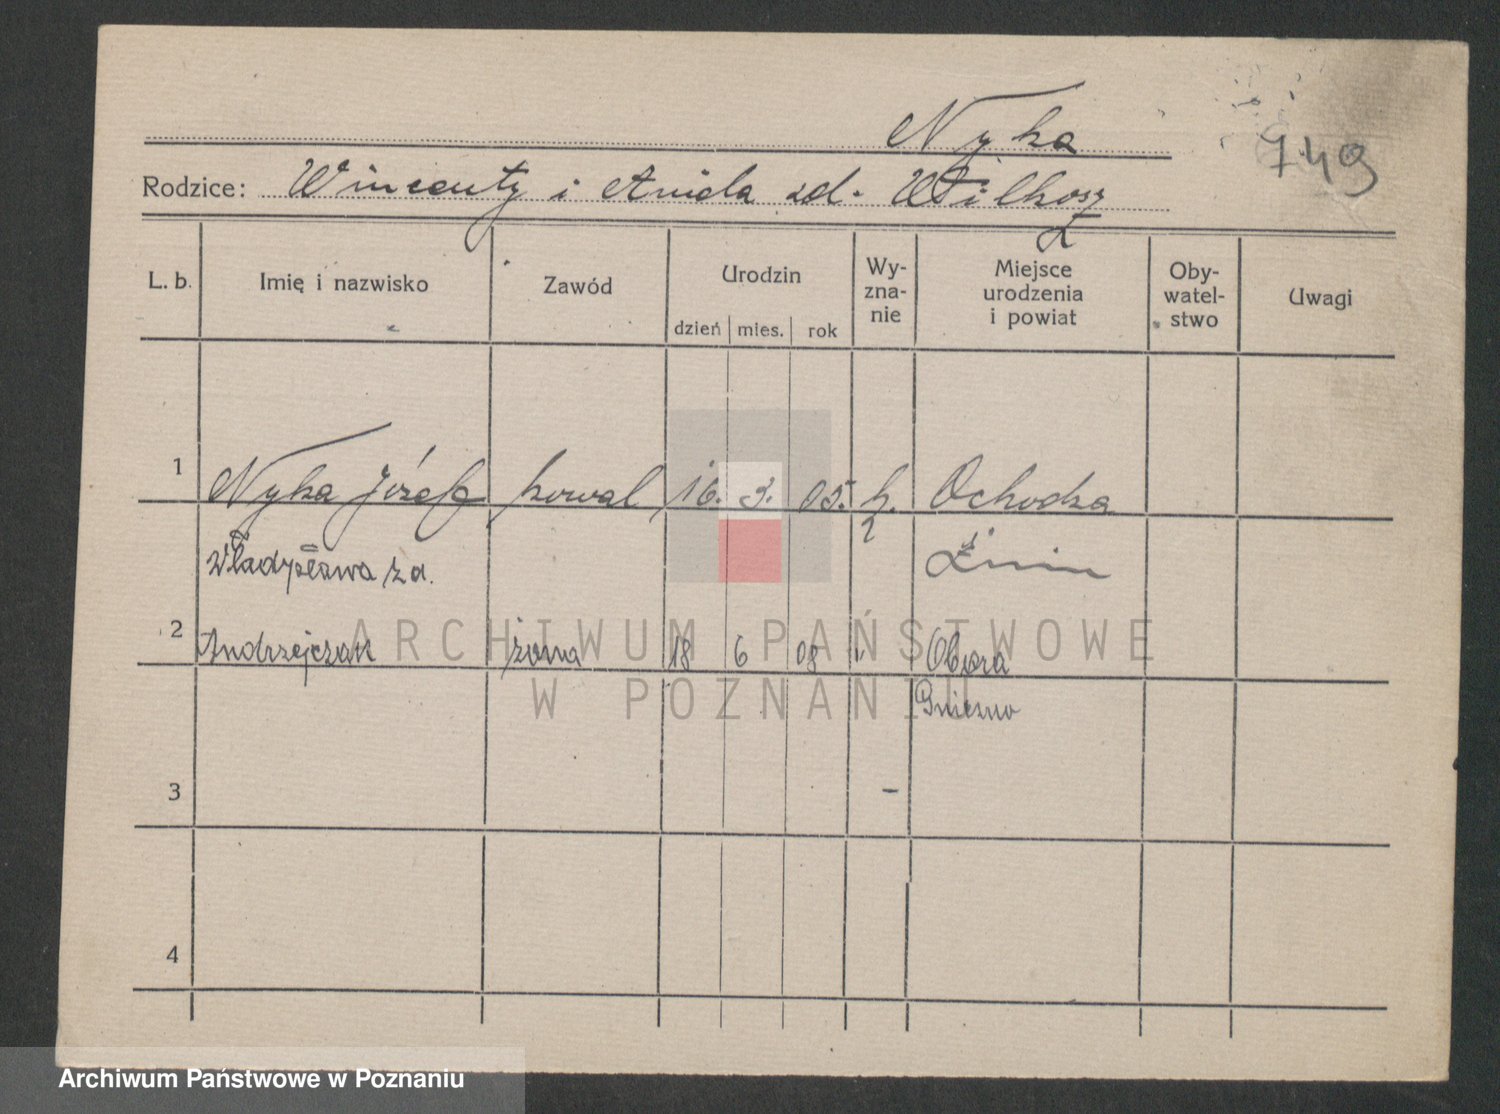 Nyka
749
Rodzice: Wincenty i Aniela zd. Wilkosz
L. b. Imię i nazwisko Zawód Urodzin dzień mies. rok Wy-zna-nie Miejsce urodzenia i powiat Oby-watel-stwo Uwagi
1 Nyka Józef kowal 16. 3. 05. k. Ochodza
Żnin
Władysława zd.
2 Andrzejczak żona 18 6 08 " Obora
Gniezno
3 -
4
ARCHIWUM PAŃSTWOWE
W POZNANIU
Archiwum Państwowe w Poznaniu